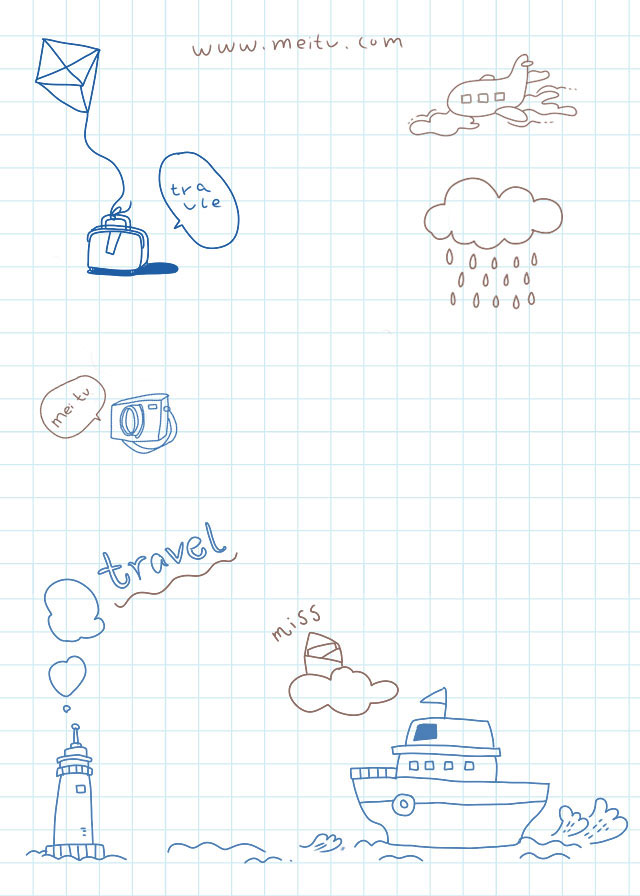 www.meitu.com
tra
vle
meitu
travel
miss